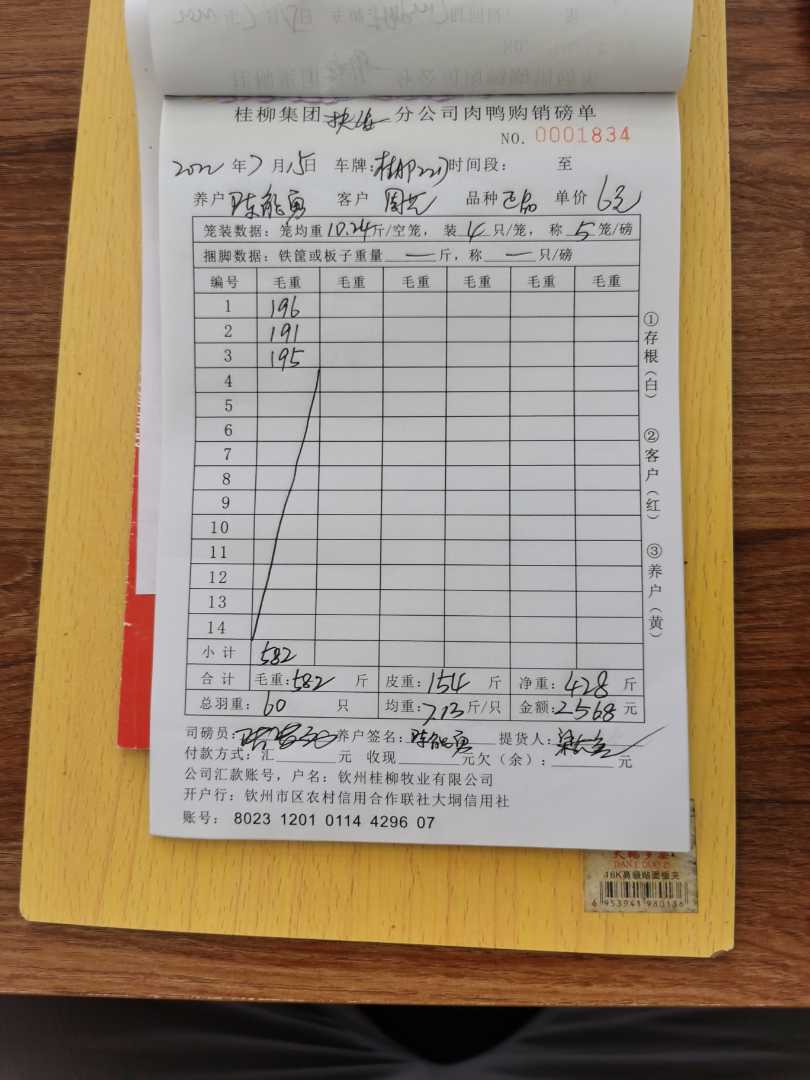 桂柳集团 分公司肉鸭购销磅单
NO. 0001834
2022 年 7 月 15 日 车牌: 桂 时间段: 至
养户 陈能勇 客户 周 品种 正品 单价 6元
笼装数据: 笼均重 10.24 斤/空笼, 装 4 只/笼, 称 5 笼/磅
捆脚数据: 铁筐或板子重量 — 斤, 称 — 只/磅
编号 毛重 毛重 毛重 毛重 毛重 毛重
1 196
2 191
3 195
4
5
6
7
8
9
10
11
12
13
14
小计 582
合计 毛重: 582 斤 皮重: 154 斤 净重: 428 斤
总羽重: 60 只 均重: 7.13 斤/只 金额: 2568 元
司磅员: 养户签名: 陈能勇 提货人:
付款方式: 汇 元 收现 元欠(余): 元
公司汇款账号, 户名: 钦州桂柳牧业有限公司
开户行: 钦州市区农村信用合作联社大垌信用社
账号: 8023 1201 0114 4296 07
①存根(白)
②客户(红)
③养户(黄)
16K高级贴面板夹
6 953941 980136